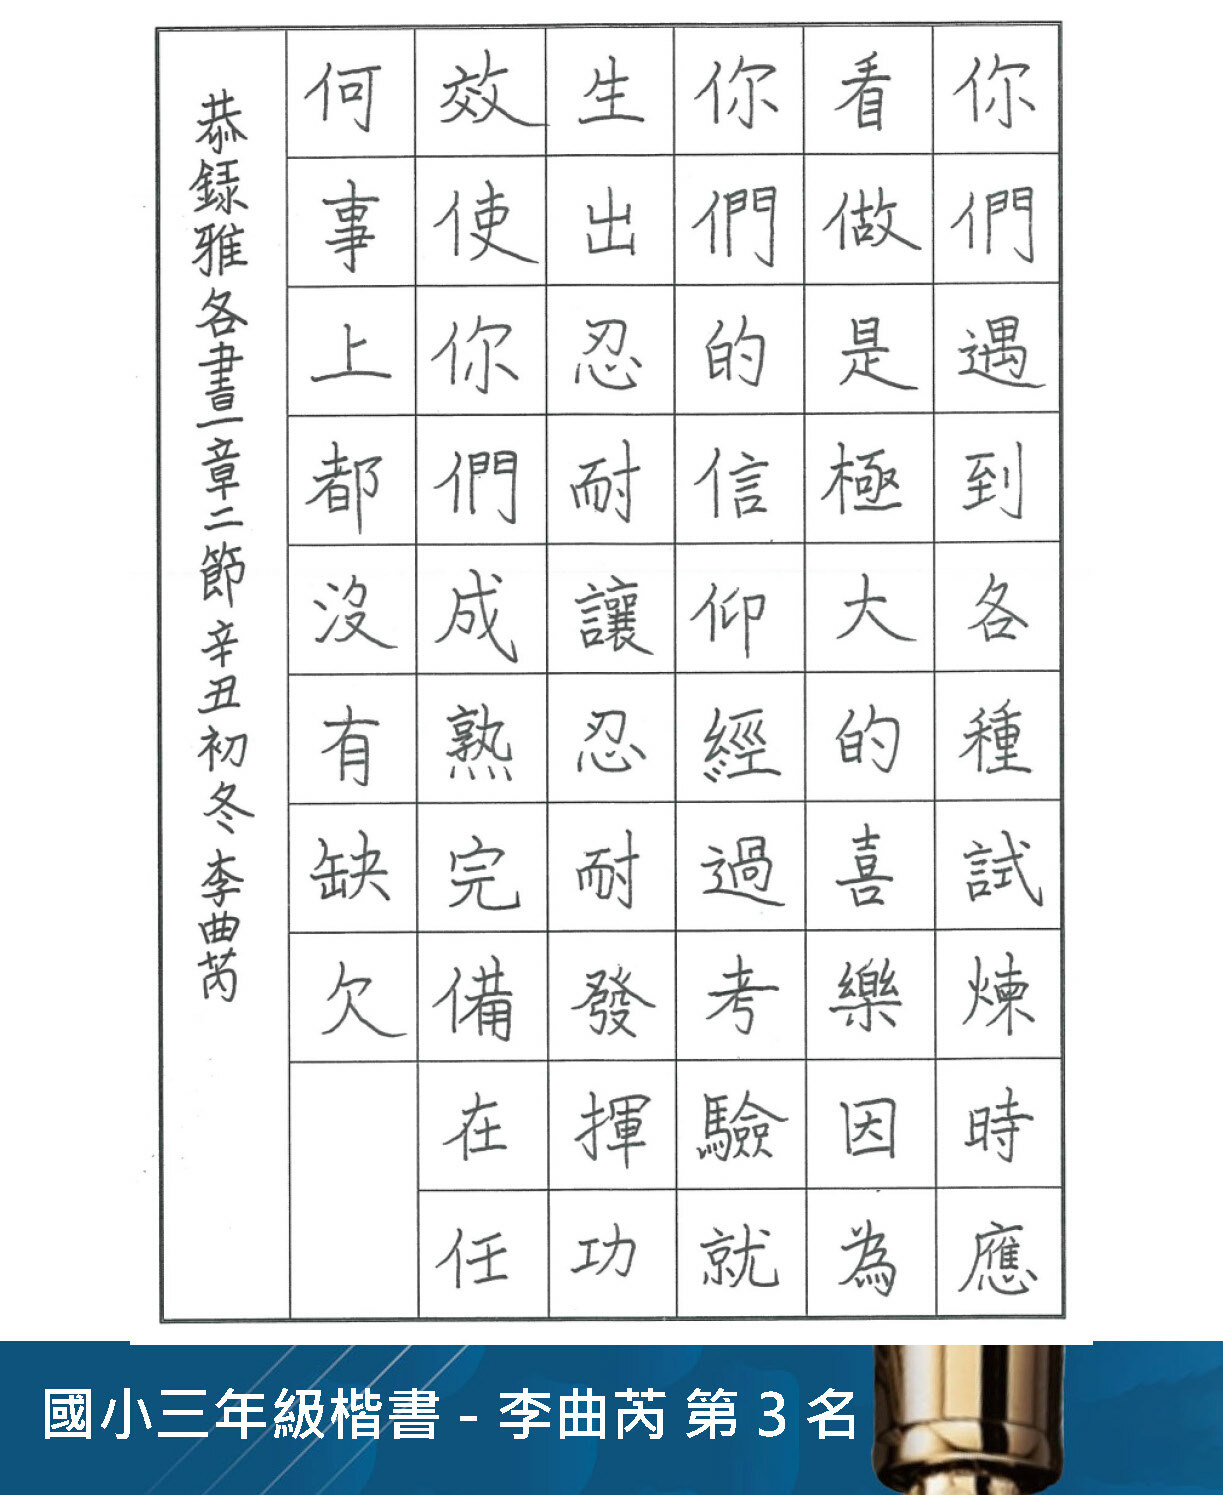 你們遇到各種試煉時應
看做是極大的喜樂因為
你們的信仰經過考驗就
生出忍耐讓忍耐發揮功
效使你們成熟完備在任
何事上都沒有缺欠
恭錄雅各書一章二節辛丑初冬李曲芮
國小三年級楷書 - 李曲芮 第 3 名